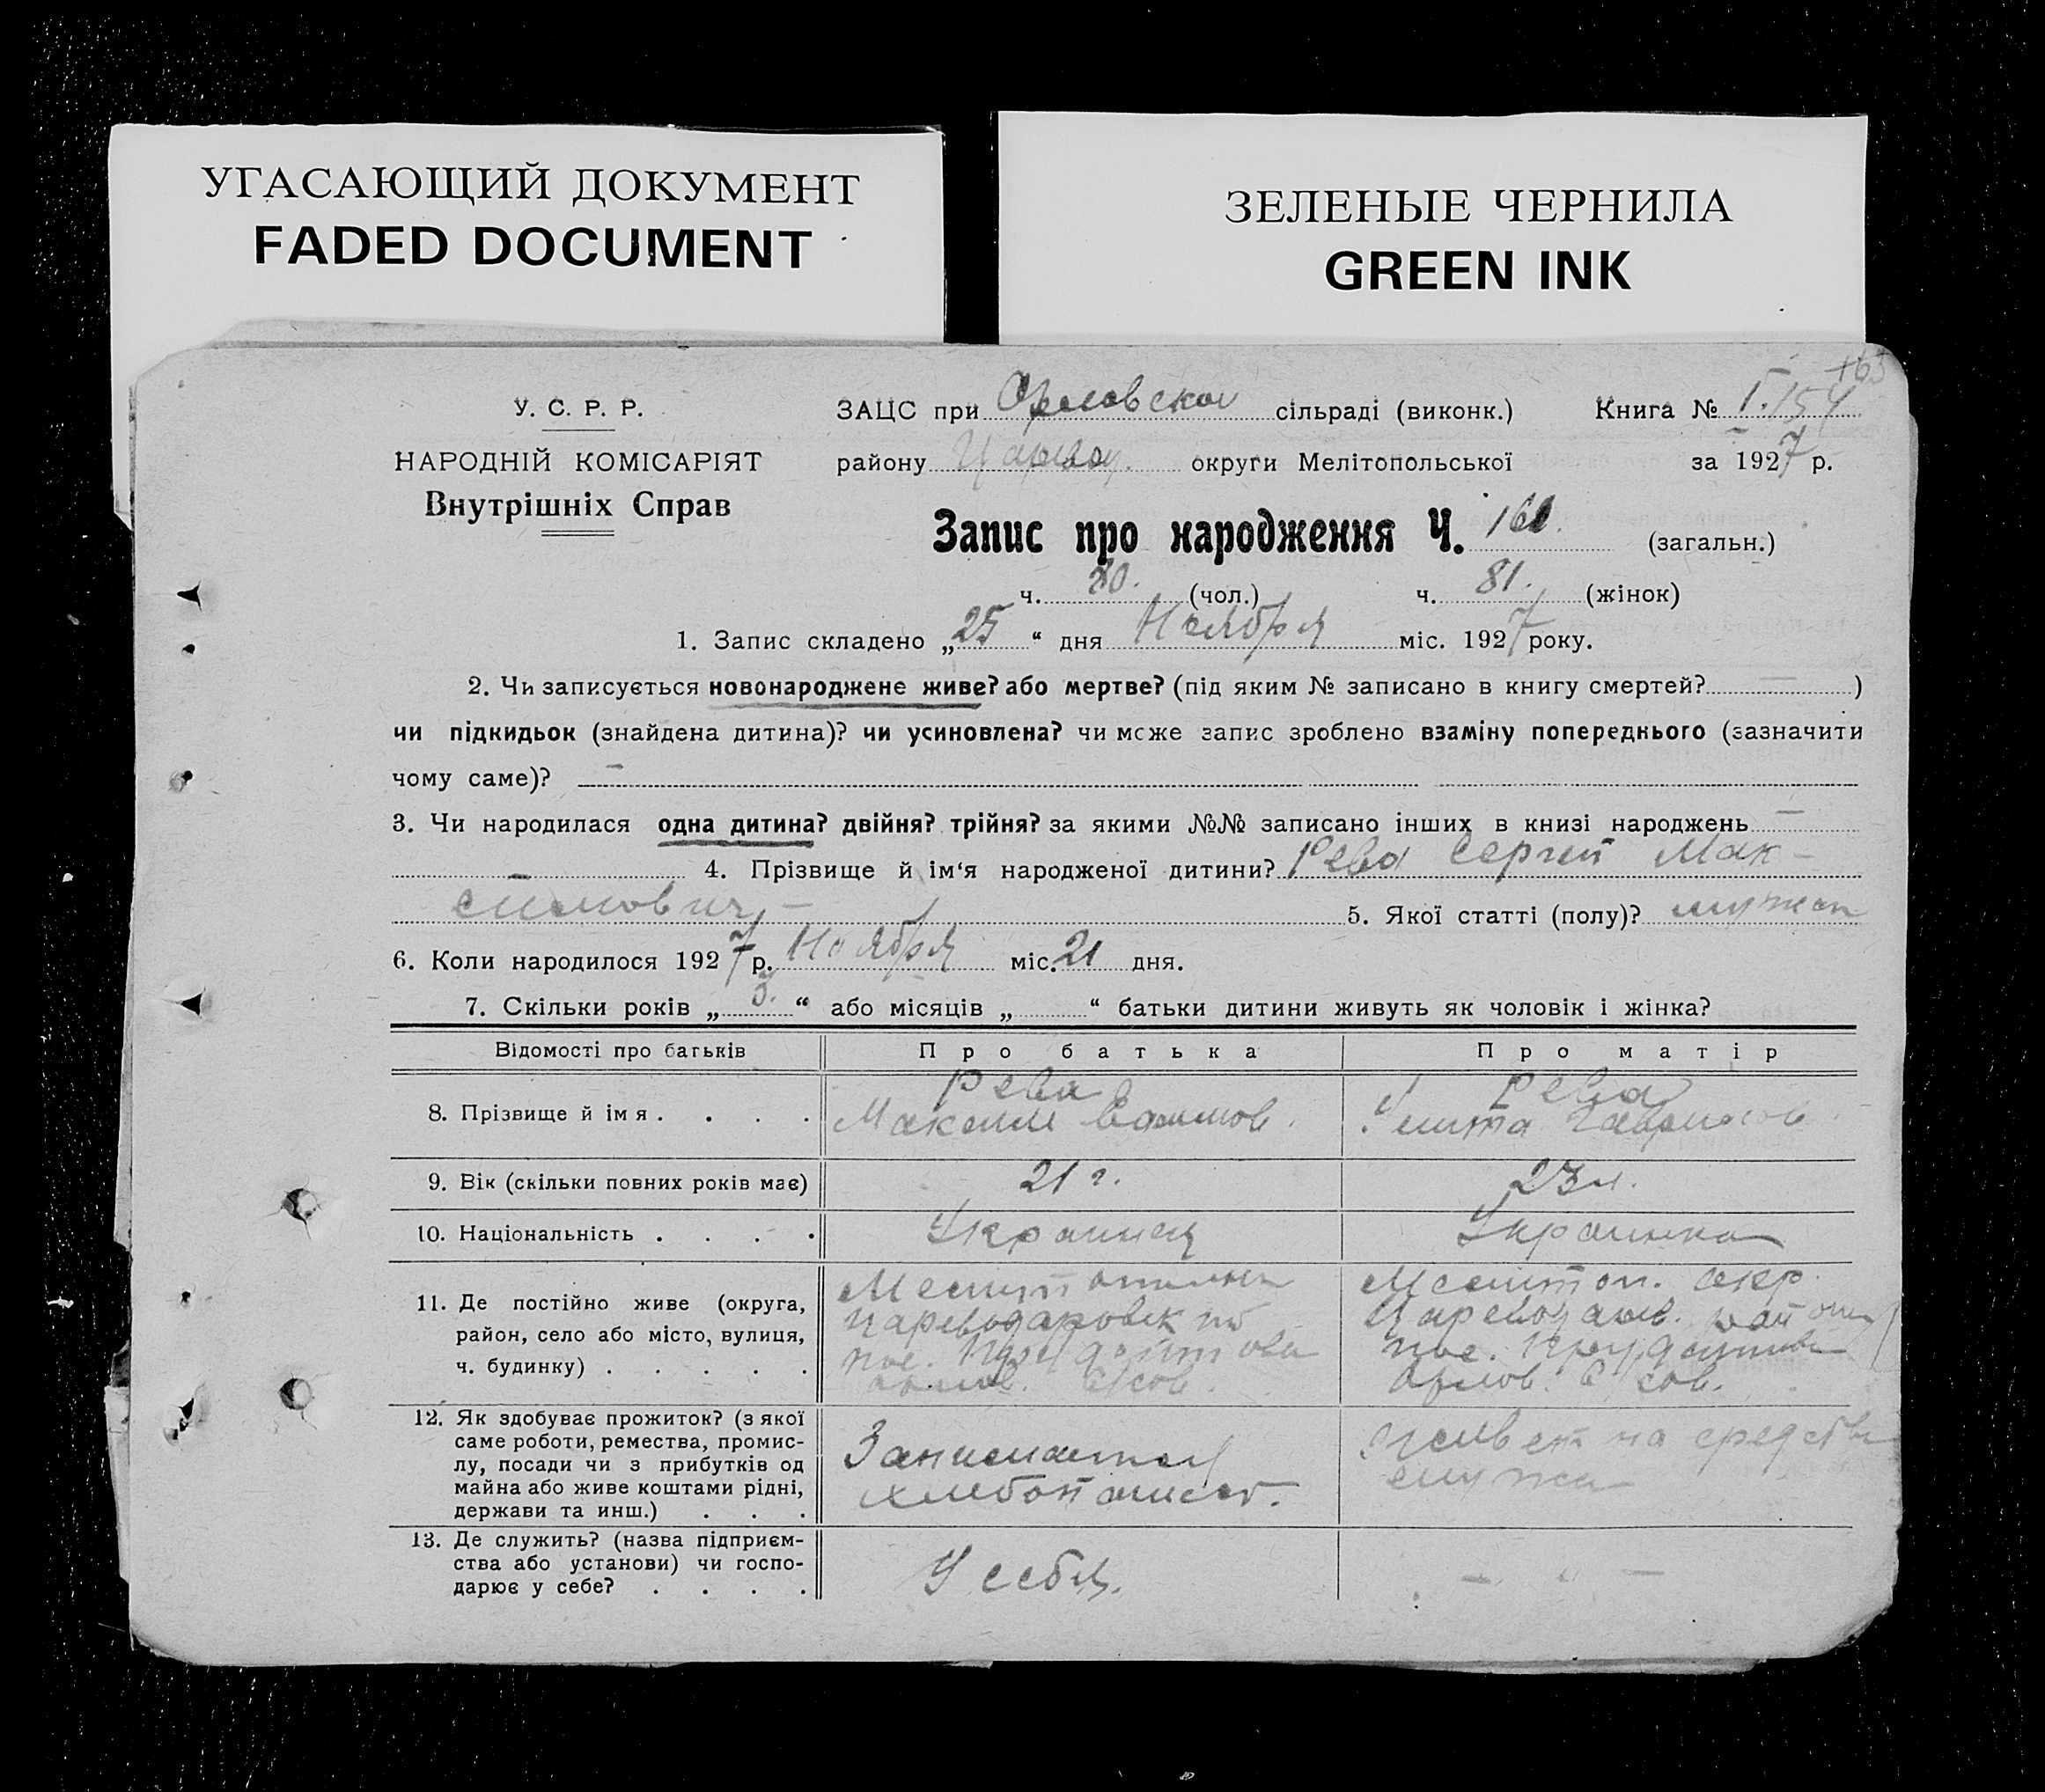 УГАСАЮЩИЙ ДОКУМЕНТ
FADED DOCUMENT
ЗЕЛЕНЫЕ ЧЕРНИЛА
GREEN INK
У. С. Р. Р.
НАРОДНІЙ КОМІСАРІЯТ
Внутрішніх Справ
ЗАЦС при Орловской сільраді (виконк.) Книга №
району округи Мелітопольської за 1927 р.
Запис про народження Ч. (загальн.)
ч. 80. (чол.) ч. 81. (жінок)
1. Запис складено „25“ дня Ноября міс. 1927 року.
2. Чи записується новонароджене живе? або мертве? (під яким № записано в книгу смертей? — )
чи підкидьок (знайдена дитина)? чи усиновлена? чи може запис зроблено взаміну попереднього (зазначити
чому саме)? —
3. Чи народилася одна дитина? двійня? трійня? за якими №№ записано інших в книзі народжень —
4. Прізвище й ім‘я народженої дитини? Рева Сергей Мак-
симович — 5. Якої статті (полу)? мужск
6. Коли народилося 1927 р. Ноября міс. 21 дня.
7. Скільки років „3.“ або місяців „ “ батьки дитини живуть як чоловік і жінка?
Відомості про батьків Про батька Про матір
8. Прізвище й імя . . . .
Рева
Максим
Рева
9. Вік (скільки повних років має) 21 г. 23 л.
10. Національність . . . . Украинец Украинка
11. Де постійно живе (округа,
район, село або місто, вулиця,
ч. будинку) . . . . .
Мелитоп. окр.
пос.
Орлов. с. сов.
12. Як здобуває прожиток? (з якої
саме роботи, ремества, промис-
лу, посади чи з прибутків од
майна або живе коштами рідні,
держави та инш.) . . .
Занимается
хлебопашест.
живет на средства
мужа
13. Де служить? (назва підприєм-
ства або установи) чи госпо-
дарює у себе? . . . .
У себя.
— " —